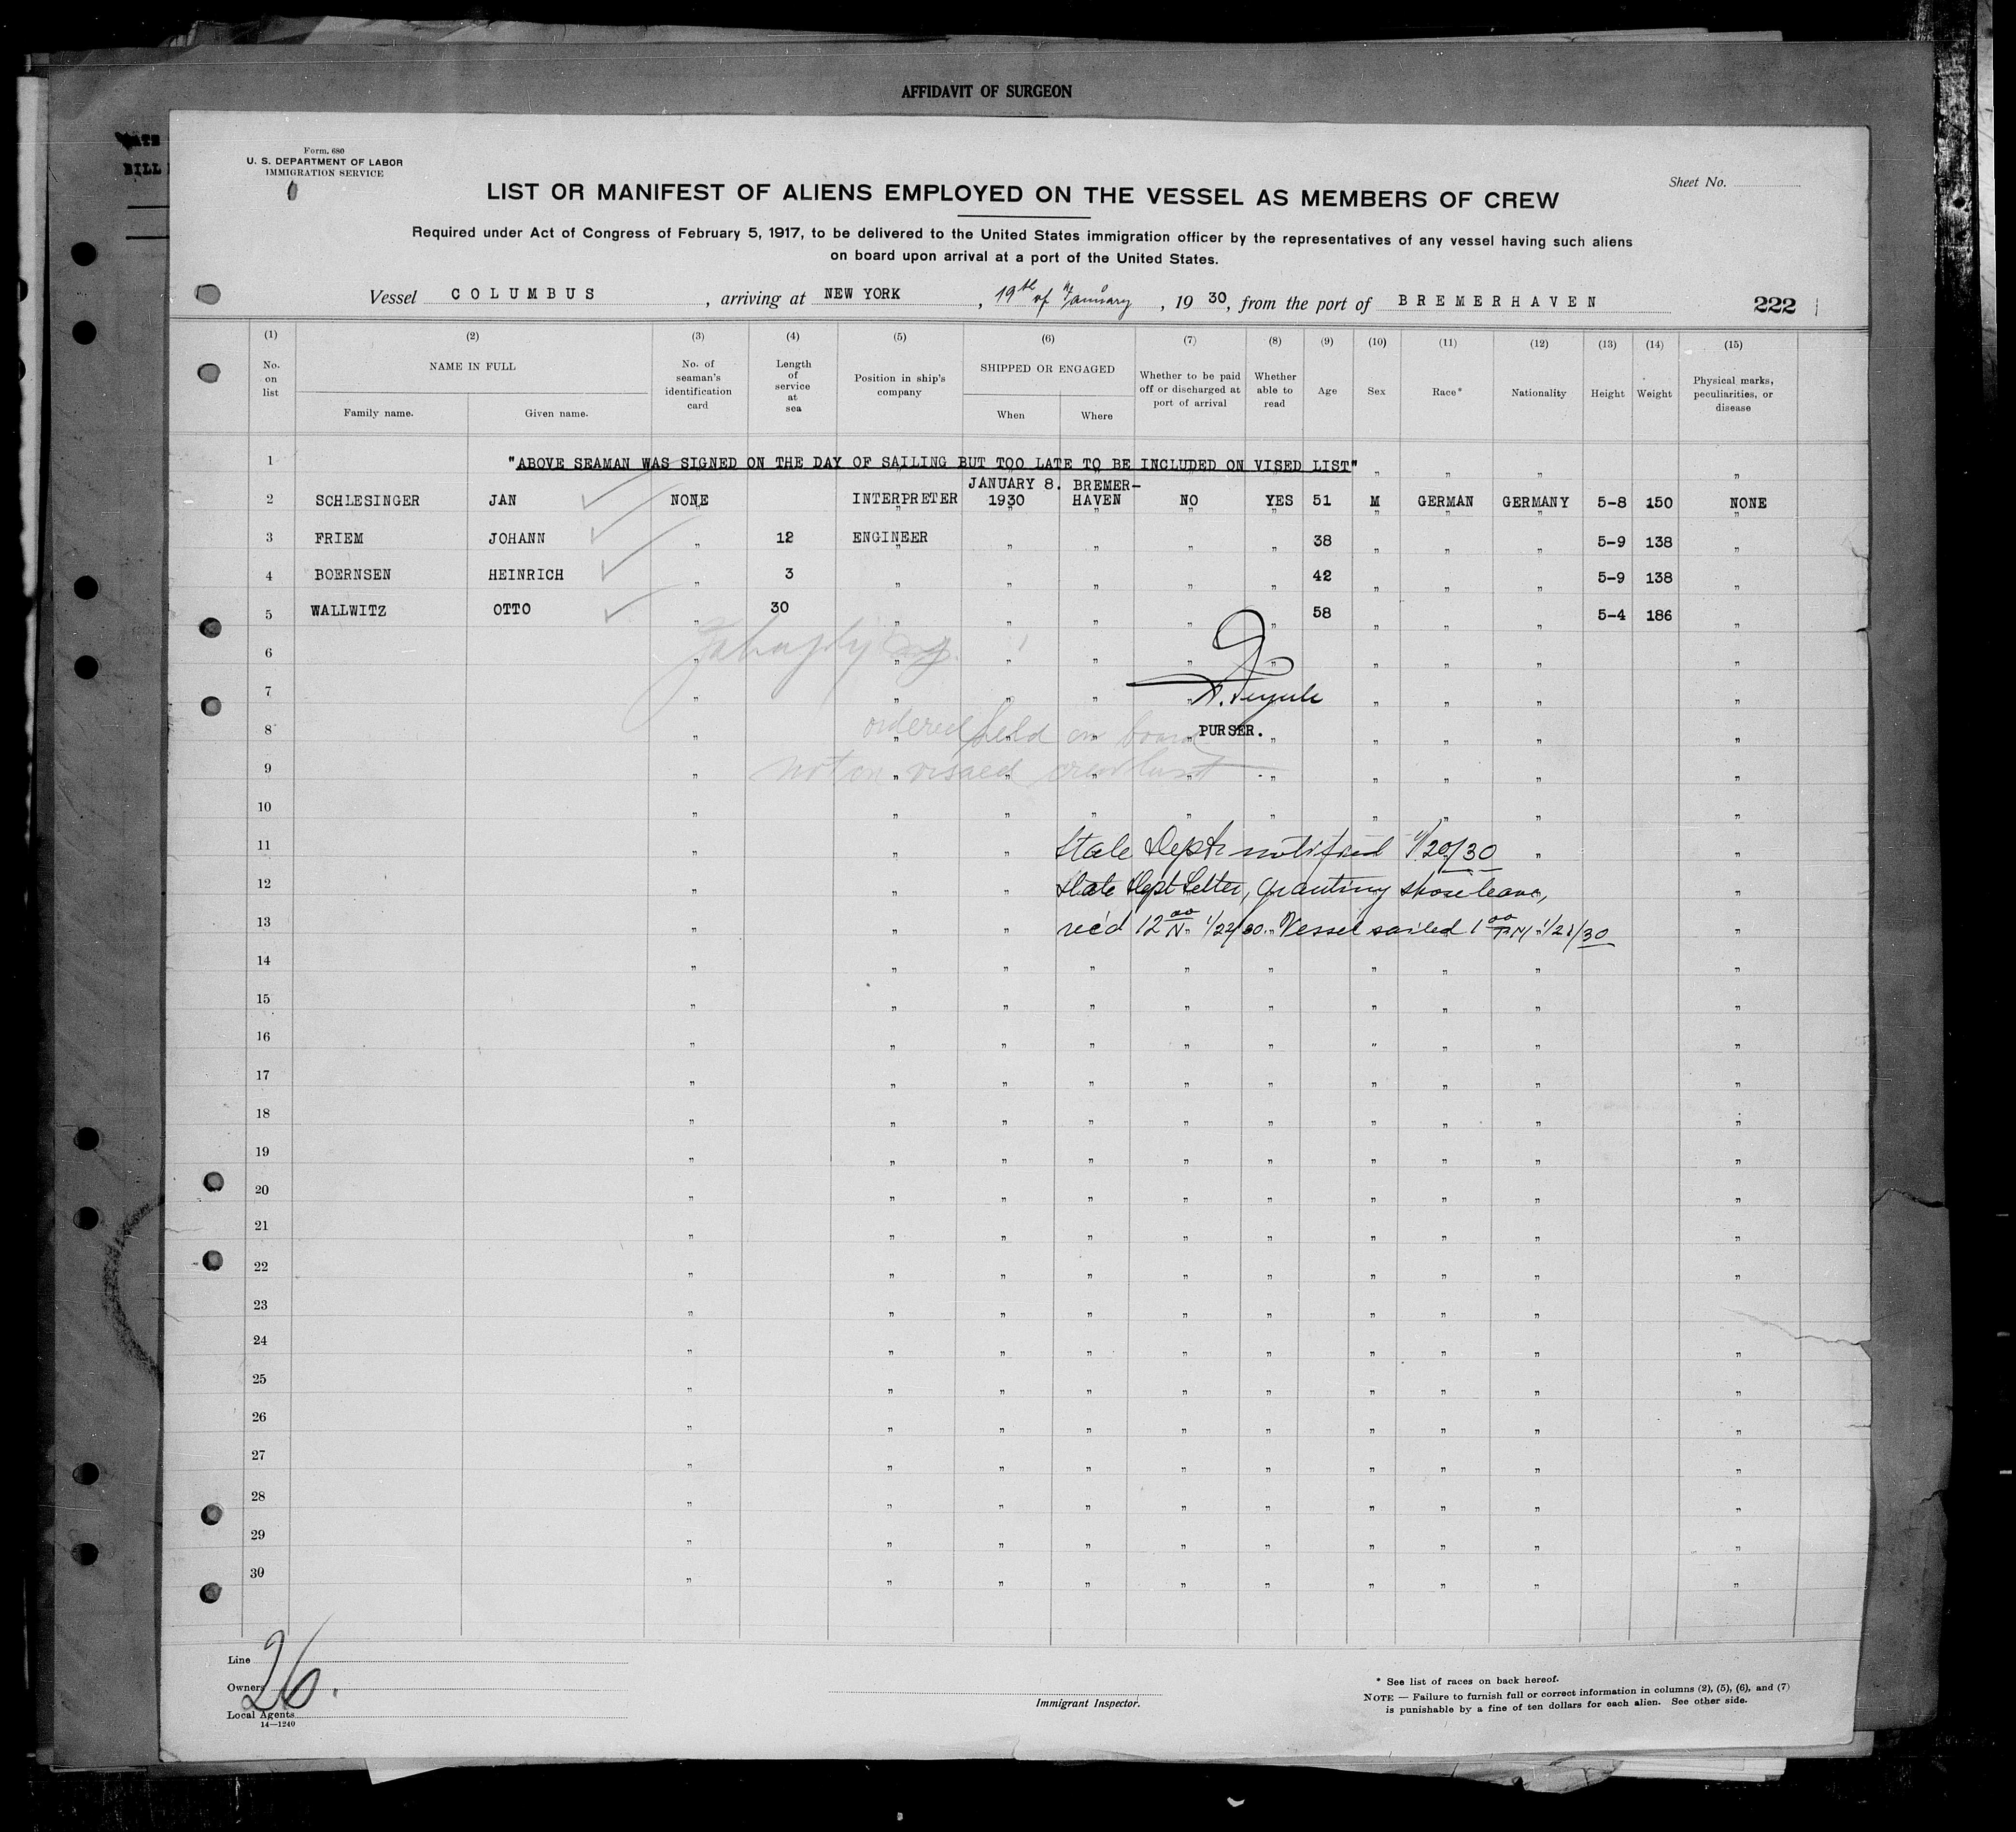 AFFIDAVIT OF SURGEON
BILL
Form. 680
U. S. DEPARTMENT OF LABOR
IMMIGRATION SERVICE
Sheet No.
LIST OR MANIFEST OF ALIENS EMPLOYED ON THE VESSEL AS MEMBERS OF CREW
Required under Act of Congress of February 5, 1917, to be delivered to the United States immigration officer by the representatives of any vessel having such aliens
on board upon arrival at a port of the United States.
Vessel COLUMBUS, arriving at NEW YORK, 19th of January, 1930, from the port of BREMERHAVEN 222
(1) (2) (3) (4) (5) (6) (7) (8) (9) (10) (11) (12) (13) (14) (15)
No. on list NAME IN FULL Family name. Given name. No. of seaman's identification card Length of service at sea Position in ship's company SHIPPED OR ENGAGED When Where Whether to be paid off or discharged at port of arrival Whether able to read Age Sex Race* Nationality Height Weight Physical marks, peculiarities, or disease
1 "ABOVE SEAMAN WAS SIGNED ON THE DAY OF SAILING BUT TOO LATE TO BE INCLUDED ON VISED LIST" " " " "
2 SCHLESINGER JAN NONE INTERPRETER JANUARY 8. 1930 BREMER-HAVEN NO YES 51 M GERMAN GERMANY 5-8 150 NONE
3 FRIEM JOHANN " 12 ENGINEER " " " " 38 " " " 5-9 138 "
4 BOERNSEN HEINRICH " 3 " " " " " 42 " " " 5-9 138 "
5 WALLWITZ OTTO " 30 " " " " " 58 " " " 5-4 186 "
6 " " " " " " " " " "
7 " " " " " " " " "
8 ordered held on board PURSER.
9 not on visaed crew list
10 " " " " " " " " " "
11 State Dept notified 1/20/30
12 State Dept Letter, granting shore leave,
13 rec'd 12 00 N. 1/22/30. Vessel sailed 1 00 PM 1/21/30
14 " " " " " " " " " "
15 " " " " " " " " " "
16 " " " " " " " " " "
17 " " " " " " " " " "
18 " " " " " " " " " "
19 " " " " " " " " " "
20 " " " " " " " " " "
21 " " " " " " " " " "
22 " " " " " " " " " "
23 " " " " " " " " " "
24 " " " " " " " " " "
25 " " " " " " " " " "
26 " " " " " " " " " "
27 " " " " " " " " " "
28 " " " " " " " " " "
29 " " " " " " " " " "
30 " " " " " " " " " "
Line
Owners
Local Agents
14—1240
26.
Immigrant Inspector.
* See list of races on back hereof.
NOTE — Failure to furnish full or correct information in columns (2), (5), (6), and (7)
is punishable by a fine of ten dollars for each alien. See other side.